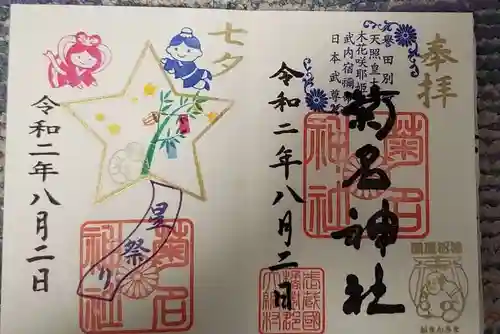 奉拝
誉田別
天照皇
木花咲耶姫
武内宿禰
日本武尊
菊名神社
菊名
神社
令和二年八月二日
七夕
星祭り
菊名
神社
令和二年八月二日